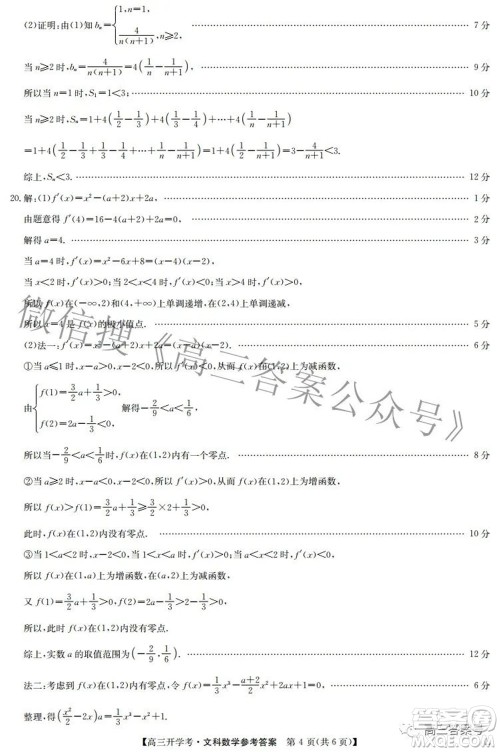 (2)证明:由(1)知bₙ={1,n=1, 4/n(n+1),n≥2, 7分
当n≥2时,bₙ=4/n(n+1)=4(1/n-1/(n+1)), 9分
所以当n=1时,S₁=1<3; 10分
当n≥2时,Sₙ=1+4(1/2-1/3)+4(1/3-1/4)+…+4(1/n-1/(n+1))
=1+4(1/2-1/3+1/3-1/4+…+1/n-1/(n+1))=1+4(1/2-1/(n+1))=3-4/(n+1)<3.
综上,Sₙ<3. 12分
20.解:(1)f′(x)=x²-(a+2)x+2a, 1分
由题意得f′(4)=16-4(a+2)+2a=0, 2分
解得a=4. 3分
当a=4时,f′(x)=x²-6x+8=(x-2)(x-4),
当x<2时,f′(x)>0;当2<x<4时,f′(x)<0;当x>4时,f′(x)>0,
所以f(x)在(-∞,2)和(4,+∞)上单调递增,在(2,4)上单调递减,
所以x=4是f(x)的极小值点. 5分
(2)法一:f′(x)=x²-(a+2)x+2a=(x-a)(x-2). 6分
①当a≤1时,x-2<0,x-a>0,f′(x)<0,所以f(x)在(1,2)上为减函数,
由{f(1)=3/2a+1/3>0, f(2)=2a-1/3<0, 解得-2/9<a<1/6,
所以当-2/9<a<1/6时,f(x)在(1,2)内有一个零点. 8分
②当a≥2时,x-2<0,x-a<0,f′(x)>0,所以f(x)在(1,2)上为增函数,
所以f(x)>f(1)=3/2a+1/3≥3/2×2+1/3>0,
此时,f(x)在(1,2)内没有零点. 10分
③当1<a<2时,x-2<0,当1<x<a时,f′(x)>0,当a<x<2时,f′(x)<0,
所以f(x)在(1,a)上为增函数,在(a,2)上为减函数,
又f(1)=3/2a+1/3>0,f(2)=2a-1/3>2-1/3>0,
所以此时f(x)在(1,2)内没有零点.
综上,实数a的取值范围为(-2/9,1/6). 12分
法二:考虑到f(x)在(1,2)内存在零点,令f(x)=1/3x³-(a+2)/2x²+2ax+1/3=0, 6分
整理,得(1/2x²-2x)a=1/3x³-x²+1/3,
【高三开学考·文科数学参考答案 第4页(共6页)】
微信搜《高三答案公众号》
高三答案号